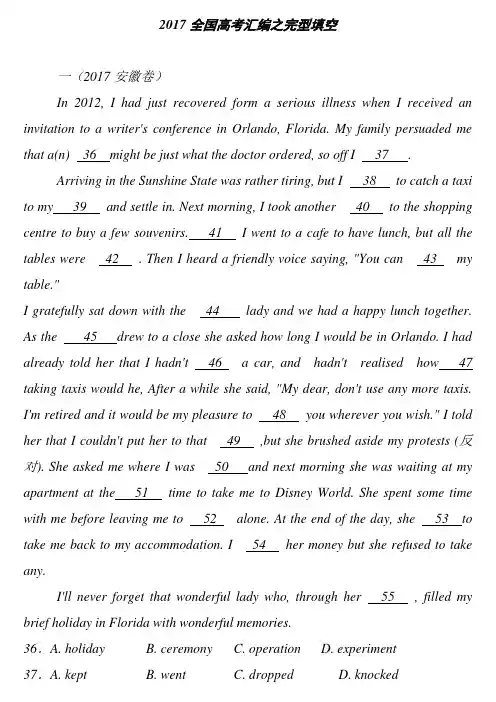 2017 全国高考汇编之完型填空
一（2017 安徽卷）
In 2012, I had just recovered form a serious illness when I received an
invitation to a writer's conference in Orlando, Florida. My family persuaded me
that a(n) 36 might be just what the doctor ordered, so off I 37 .
Arriving in the Sunshine State was rather tiring, but I 38 to catch a taxi
to my 39 and settle in. Next morning, I took another 40 to the shopping
centre to buy a few souvenirs. 41 I went to a cafe to have lunch, but all the
tables were 42 . Then I heard a friendly voice saying, "You can 43 my
table."
I gratefully sat down with the 44 lady and we had a happy lunch together.
As the 45 drew to a close she asked how long I would be in Orlando. I had
already told her that I hadn't 46 a car, and hadn't realised how 47
taking taxis would he, After a while she said, "My dear, don't use any more taxis.
I'm retired and it would be my pleasure to 48 you wherever you wish." I told
her that I couldn't put her to that 49 ,but she brushed aside my protests (反
对). She asked me where I was 50 and next morning she was waiting at my
apartment at the 51 time to take me to Disney World. She spent some time
with me before leaving me to 52 alone. At the end of the day, she 53 to
take me back to my accommodation. I 54 her money but she refused to take
any.
I'll never forget that wonderful lady who, through her 55 , filled my
brief holiday in Florida with wonderful memories.
36．A. holiday B. ceremony C. operation D. experiment
37．A. kept B. went C. dropped D. knocked